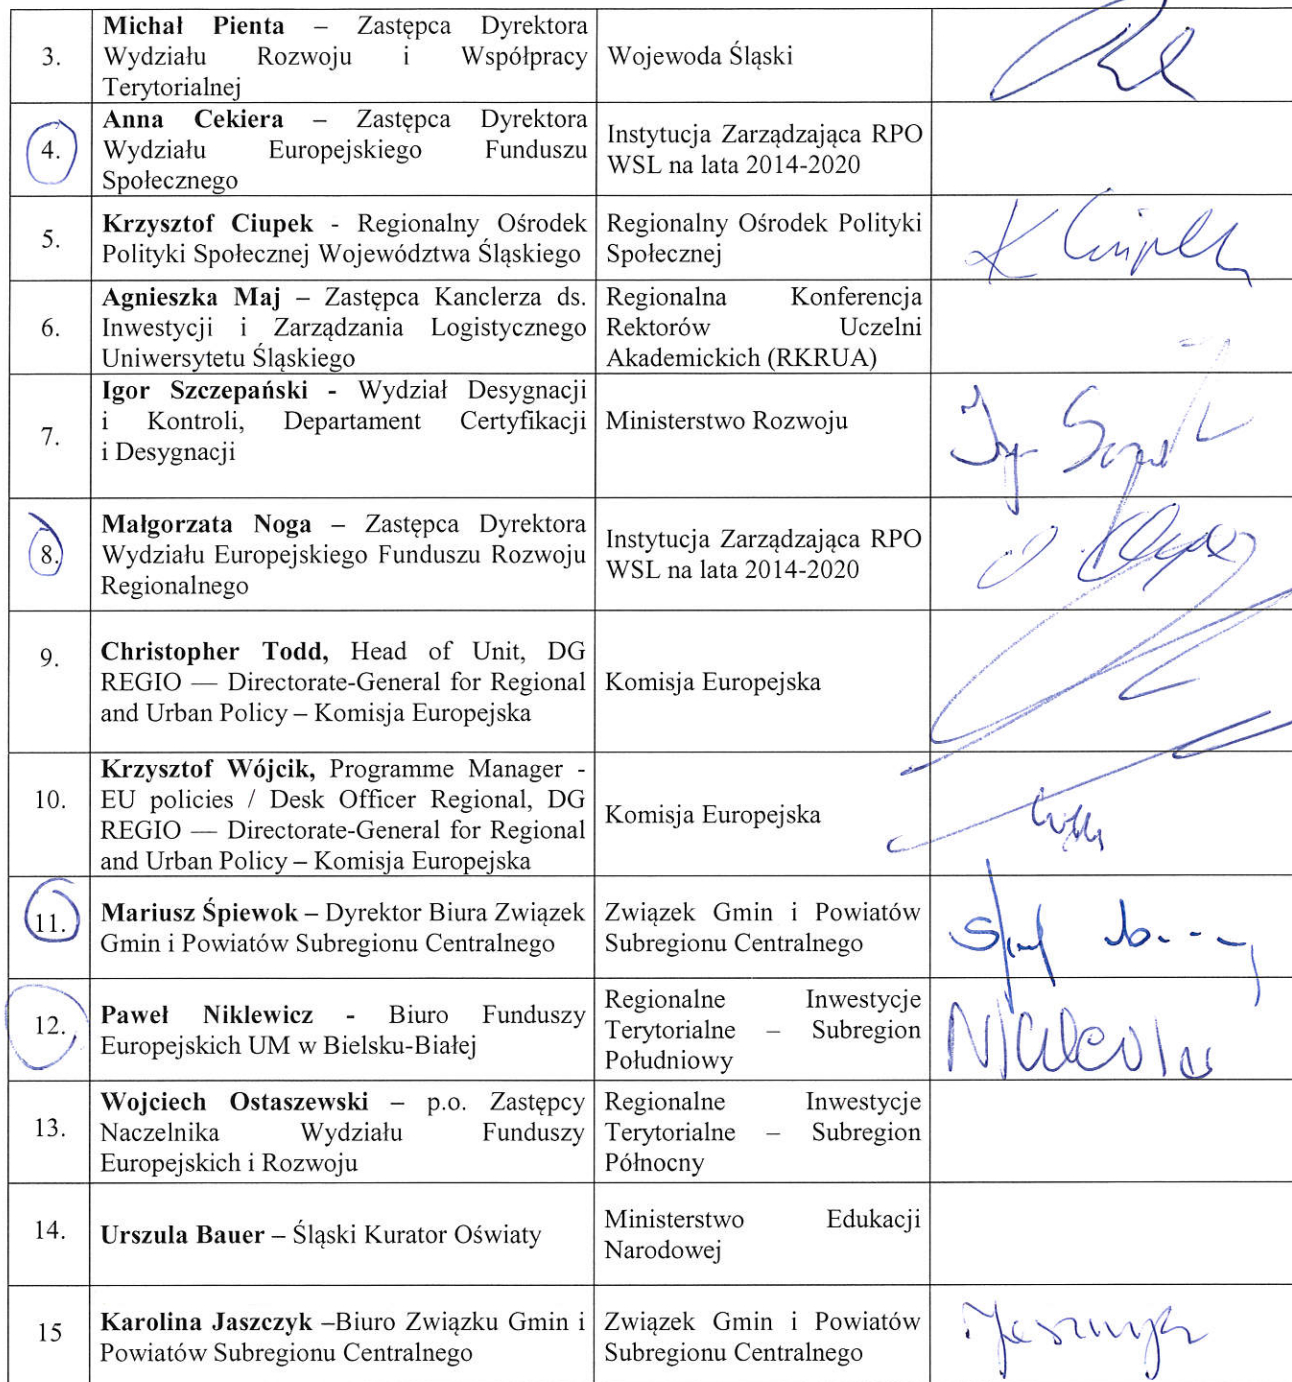 3.
Michał Pienta – Zastępca Dyrektora
Wydziału Rozwoju i Współpracy
Terytorialnej
Wojewoda Śląski
4.
Anna Cekiera – Zastępca Dyrektora
Wydziału Europejskiego Funduszu
Społecznego
Instytucja Zarządzająca RPO
WSL na lata 2014-2020
5.
Krzysztof Ciupek - Regionalny Ośrodek
Polityki Społecznej Województwa Śląskiego
Regionalny Ośrodek Polityki
Społecznej
K Ciupek
6.
Agnieszka Maj – Zastępca Kanclerza ds.
Inwestycji i Zarządzania Logistycznego
Uniwersytetu Śląskiego
Regionalna Konferencja
Rektorów Uczelni
Akademickich (RKRUA)
7.
Igor Szczepański - Wydział Desygnacji
i Kontroli, Departament Certyfikacji
i Desygnacji
Ministerstwo Rozwoju
8.
Małgorzata Noga – Zastępca Dyrektora
Wydziału Europejskiego Funduszu Rozwoju
Regionalnego
Instytucja Zarządzająca RPO
WSL na lata 2014-2020
9.
Christopher Todd, Head of Unit, DG
REGIO — Directorate-General for Regional
and Urban Policy – Komisja Europejska
Komisja Europejska
10.
Krzysztof Wójcik, Programme Manager -
EU policies / Desk Officer Regional, DG
REGIO — Directorate-General for Regional
and Urban Policy – Komisja Europejska
Komisja Europejska
11.
Mariusz Śpiewok – Dyrektor Biura Związek
Gmin i Powiatów Subregionu Centralnego
Związek Gmin i Powiatów
Subregionu Centralnego
12.
Paweł Niklewicz - Biuro Funduszy
Europejskich UM w Bielsku-Białej
Regionalne Inwestycje
Terytorialne – Subregion
Południowy
13.
Wojciech Ostaszewski – p.o. Zastępcy
Naczelnika Wydziału Funduszy
Europejskich i Rozwoju
Regionalne Inwestycje
Terytorialne – Subregion
Północny
14.
Urszula Bauer – Śląski Kurator Oświaty
Ministerstwo Edukacji
Narodowej
15
Karolina Jaszczyk –Biuro Związku Gmin i
Powiatów Subregionu Centralnego
Związek Gmin i Powiatów
Subregionu Centralnego